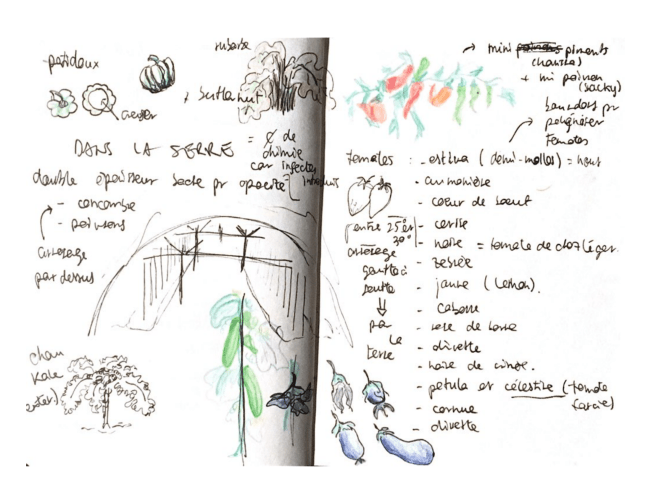 patidoux
rubarbe
creuser
+ butternut
DANS LA SERRE = ∅ de
chimie
car insectes
introduits
double épaisseur bache pr opacité
- concombre
- poivrons
arrosage
par dessus
chou
Kale
→ mini piments
(chauve)
+ mi poivron
(sacky)
bourdons pr
polliniser
Tomates
Tomates : - estiva (demi-molles) = hors
- aumonière
- coeur de boeuf
- cerise
- noire = tomate de
- zébrée
- jaune (lemon).
- cabosse
- rose de berne
- olivette
- noire de crimée.
- petula et célestine (tomate
farcie)
- cornue
- olivette
entre 25° et
30°
arrosage
goutte à
goutte
⇓
par
la
terre